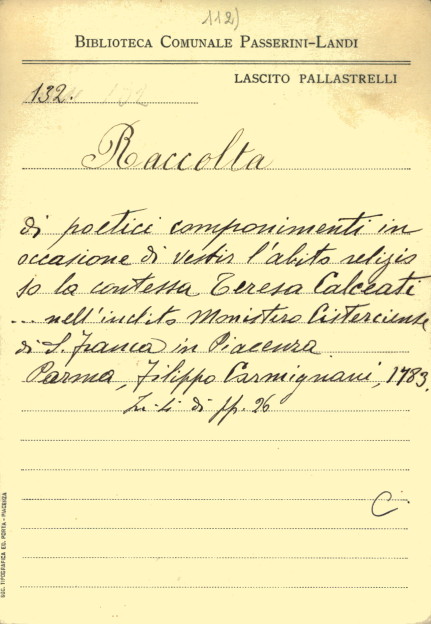 112)
BIBLIOTECA COMUNALE PASSERINI-LANDI
LASCITO PALLASTRELLI
132. 132
Raccolta
di poetici componimenti in
occasione di vestir l'abito religio
so la contessa Teresa Calceati
... nell'inclito Monistero Cisterciense
di S. Franca in Piacenza.
Parma, Filippo Carmignani, 1783.
di pp. 26
C
SOC. TIPOGRAFICA ED. PORTA - PIACENZA